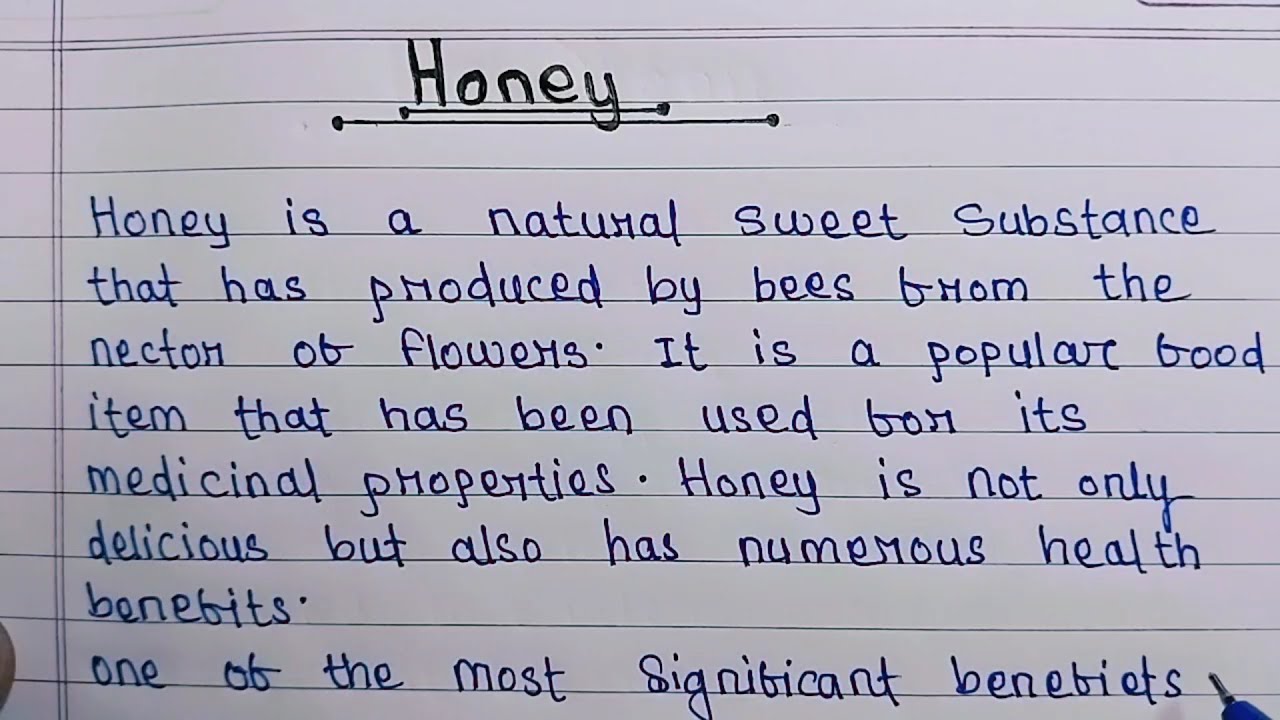 Honey
Honey is a natural sweet Substance
that has produced by bees from the
nector of flowers. It is a popular food
item that has been used for its
medicinal properties. Honey is not only
delicious but also has numerous health
benefits.
one of the most Significant benefiets